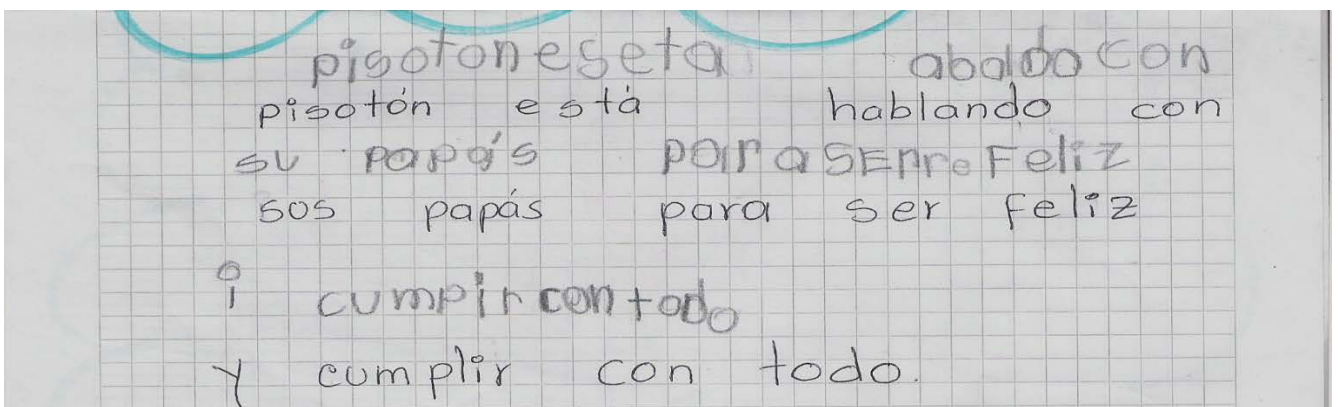 pisotoneseta abaldo con
pisotón está hablando con
su papás para SEnre Feliz
sos papás para ser feliz
i cumpir con todo
y cumplir con todo.